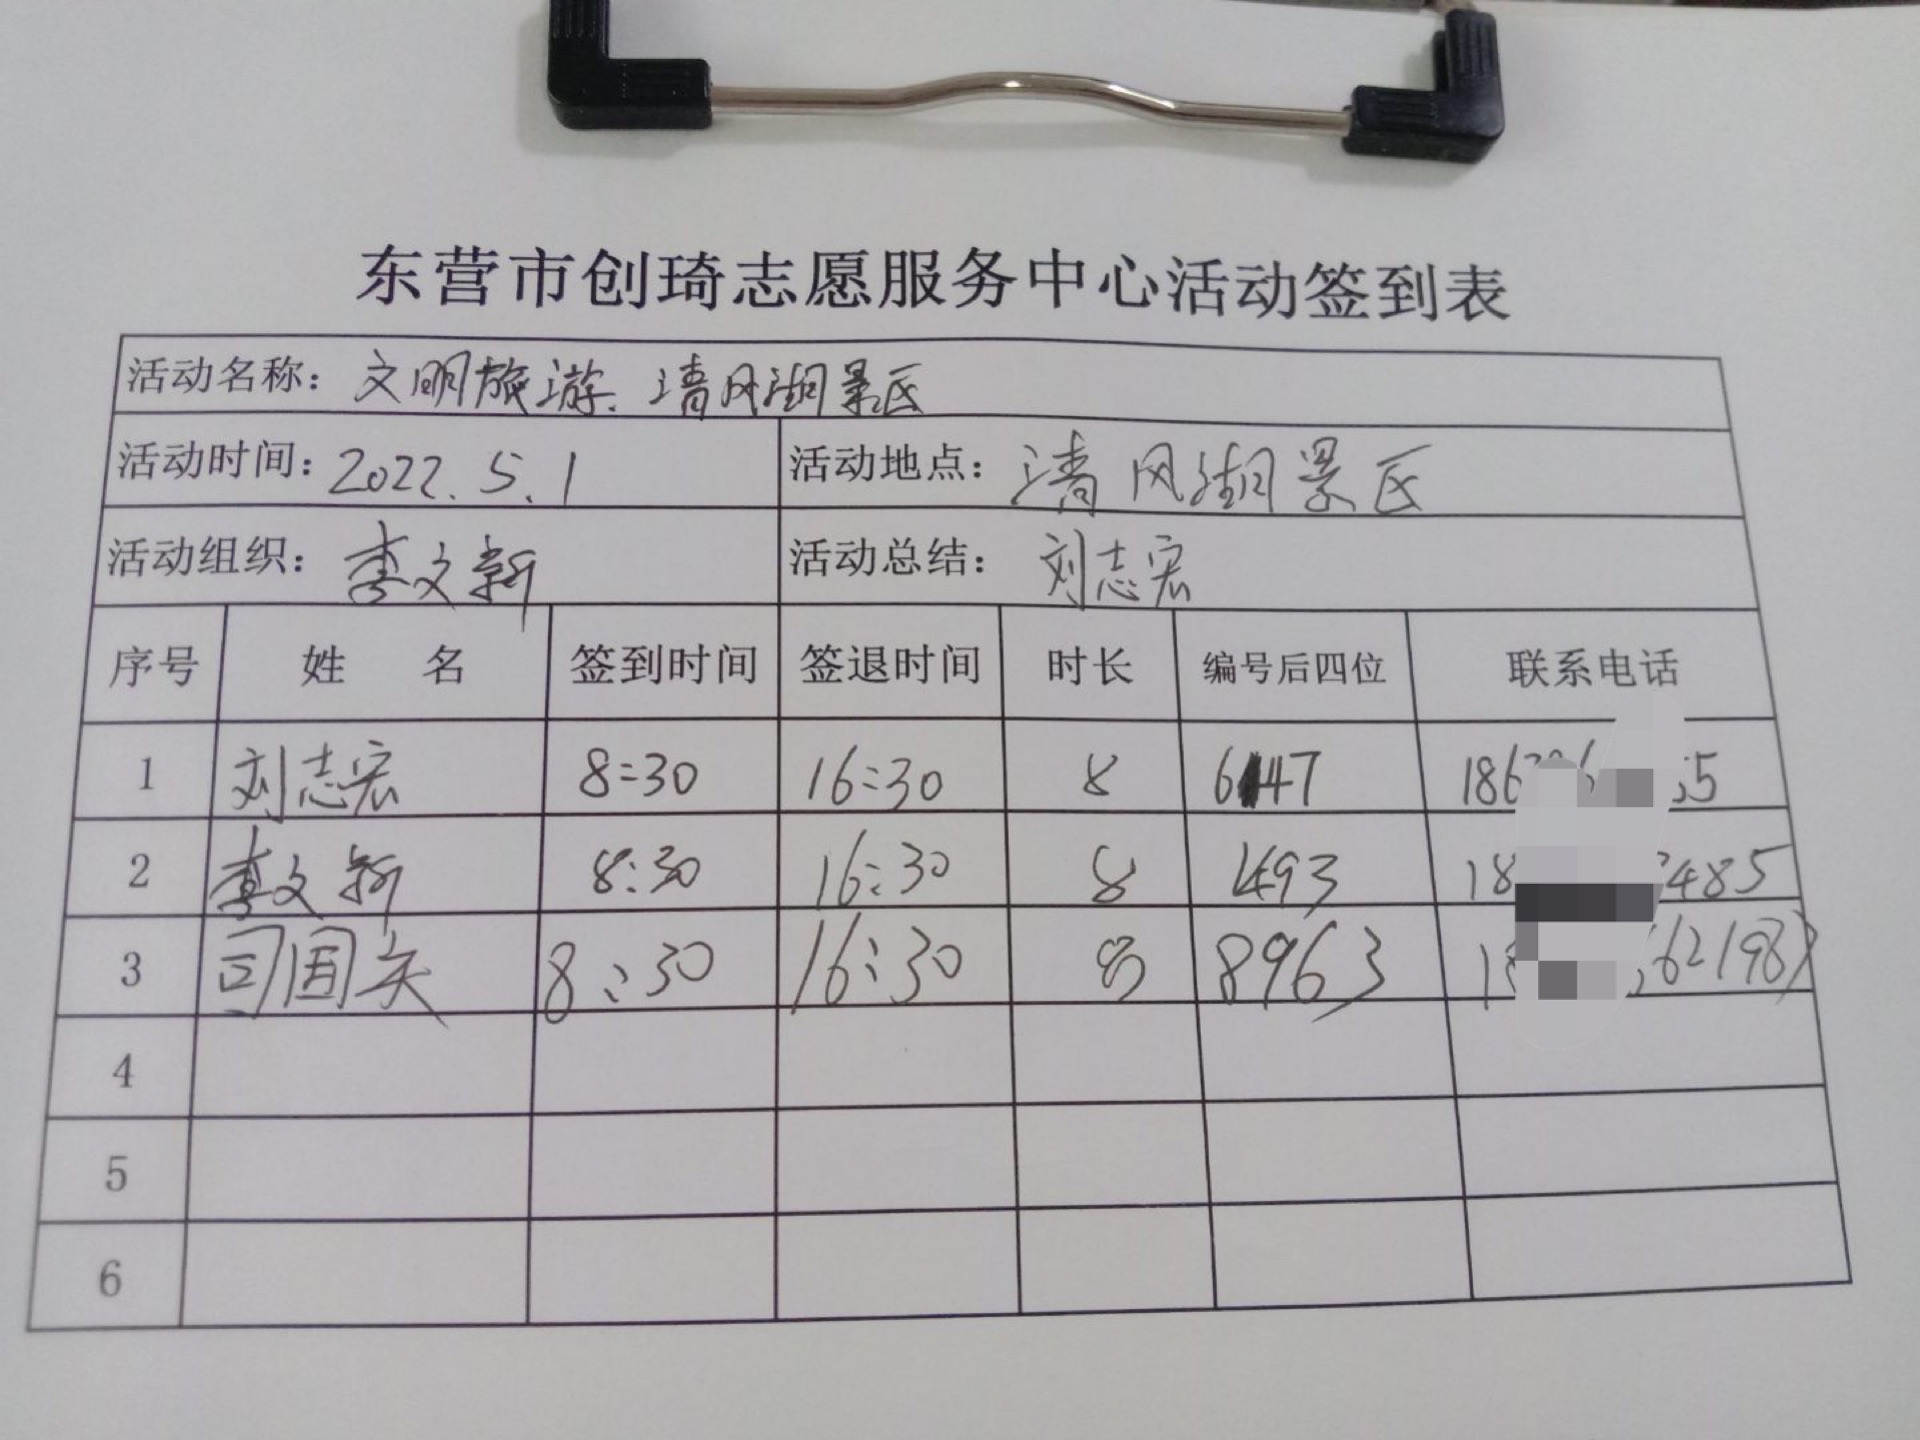 东营市创琦志愿服务中心活动签到表
活动名称：文明旅游.清风湖景区
活动时间：2022.5.1 活动地点：清风湖景区
活动组织：李文新 活动总结：刘志宏
序号 姓 名 签到时间 签退时间 时长 编号后四位 联系电话
1 刘志宏 8:30 16:30 8 6147
2 李文新 8:30 16:30 8 1493
3 8:30 16:30 8 8963
4
5
6